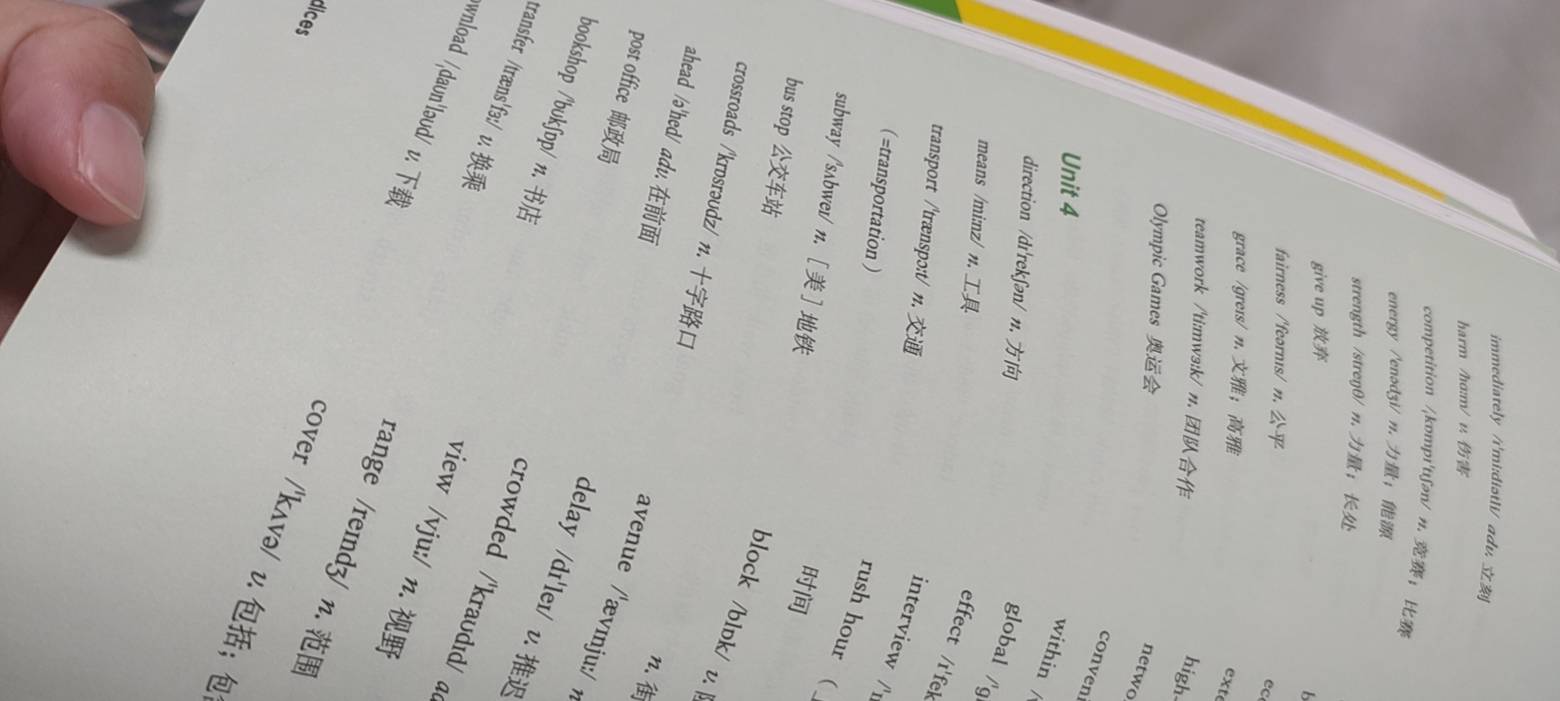 immediately /ɪˈmiːdiətli/ adv. 立刻
harm /hɑːm/ v. 伤害
competition /ˌkɒmpɪˈtɪʃən/ n. 竞赛；比赛
energy /ˈenədʒi/ n. 力量；能源
strength /streŋθ/ n. 力量；长处
give up 放弃
fairness /ˈfeənɪs/ n. 公平
grace /ɡreɪs/ n. 文雅；高雅
teamwork /ˈtiːmwɜːk/ n. 团队合作
Olympic Games 奥运会
Unit 4
direction /dɪˈrekʃən/ n. 方向
means /miːnz/ n. 工具
transport /ˈtrænspɔːt/ n. 交通
（=transportation）
subway /ˈsʌbweɪ/ n.［美］地铁
bus stop 公交车站
crossroads /ˈkrɒsrəʊdz/ n. 十字路口
ahead /əˈhed/ adv. 在前面
post office 邮政局
bookshop /ˈbʊkʃɒp/ n. 书店
transfer /trænsˈfɜː/ v. 换乘
ownload /ˌdaʊnˈləʊd/ v. 下载
dices
exte
high-
netwo
conveni
within /
global /ˈɡ
effect /ɪˈfek
interview /ˈɪ
rush hour（
时间
block /blɒk/ v.
n. 街
avenue /ˈævɪnjuː/ n
delay /dɪˈleɪ/ v. 推迟
crowded /ˈkraʊdɪd/ a
view /vjuː/ n. 视野
range /reɪndʒ/ n. 范围
cover /ˈkʌvə/ v. 包括；包